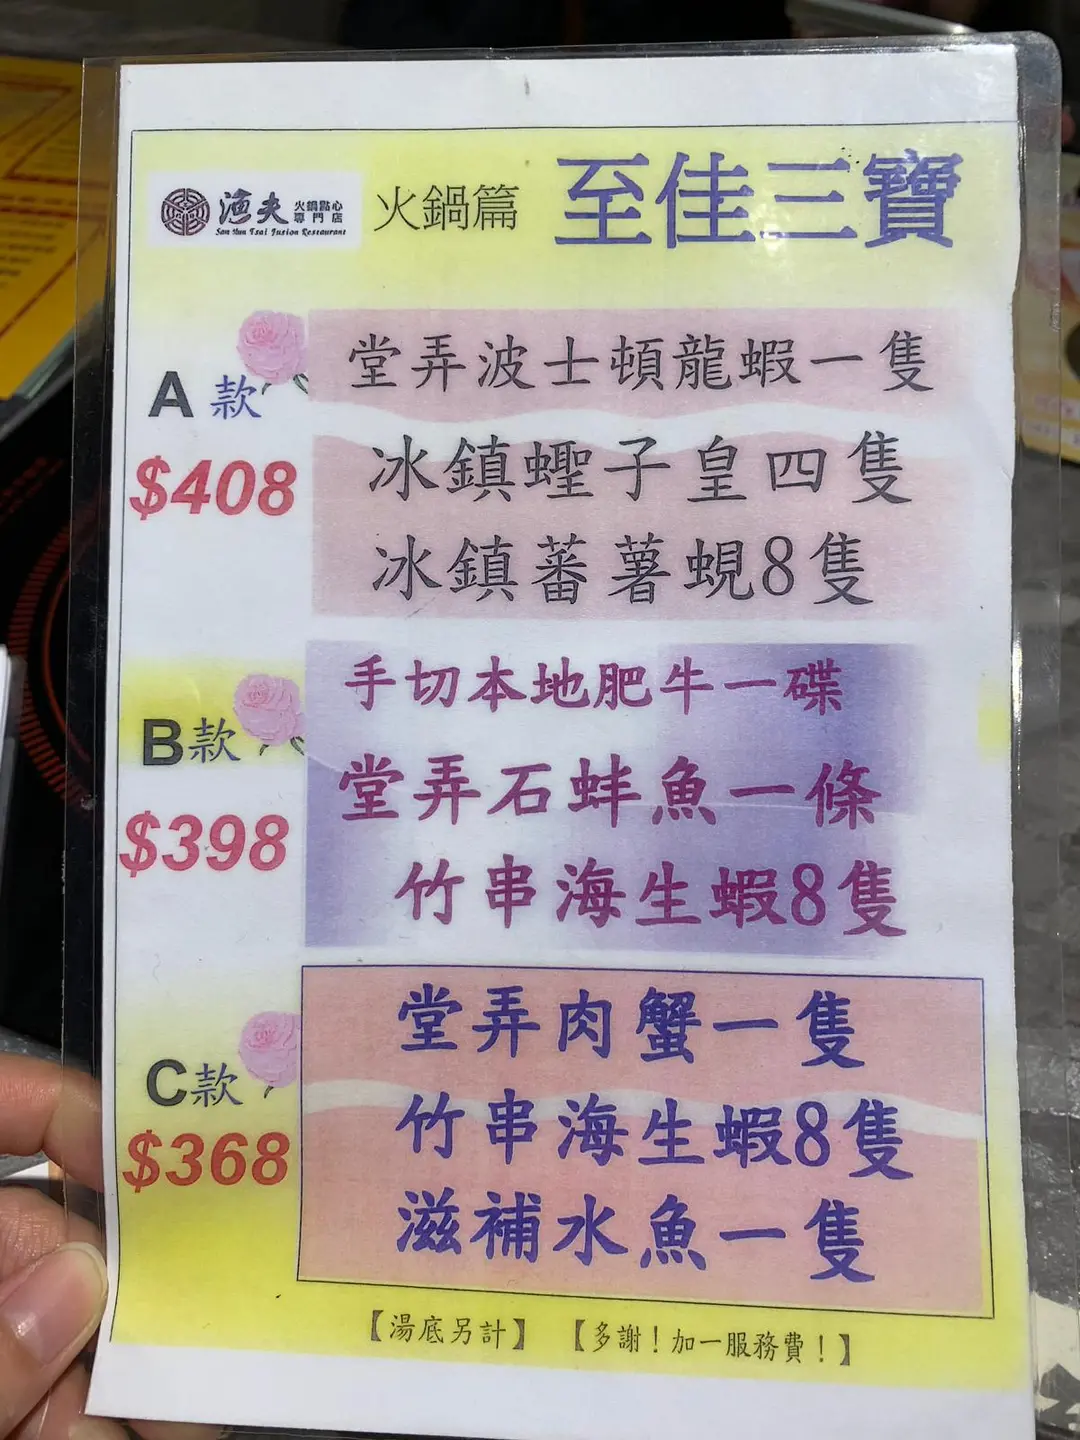 漁夫 火鍋點心專門店
San Hun Tsai Fusion Restaurant
火鍋篇
至佳三寶
A款
$408
堂弄波士頓龍蝦一隻
冰鎮蟶子皇四隻
冰鎮蕃薯蜆8隻
B款
$398
手切本地肥牛一碟
堂弄石蚌魚一條
竹串海生蝦8隻
C款
$368
堂弄肉蟹一隻
竹串海生蝦8隻
滋補水魚一隻
【湯底另計】 【多謝！加一服務費！】